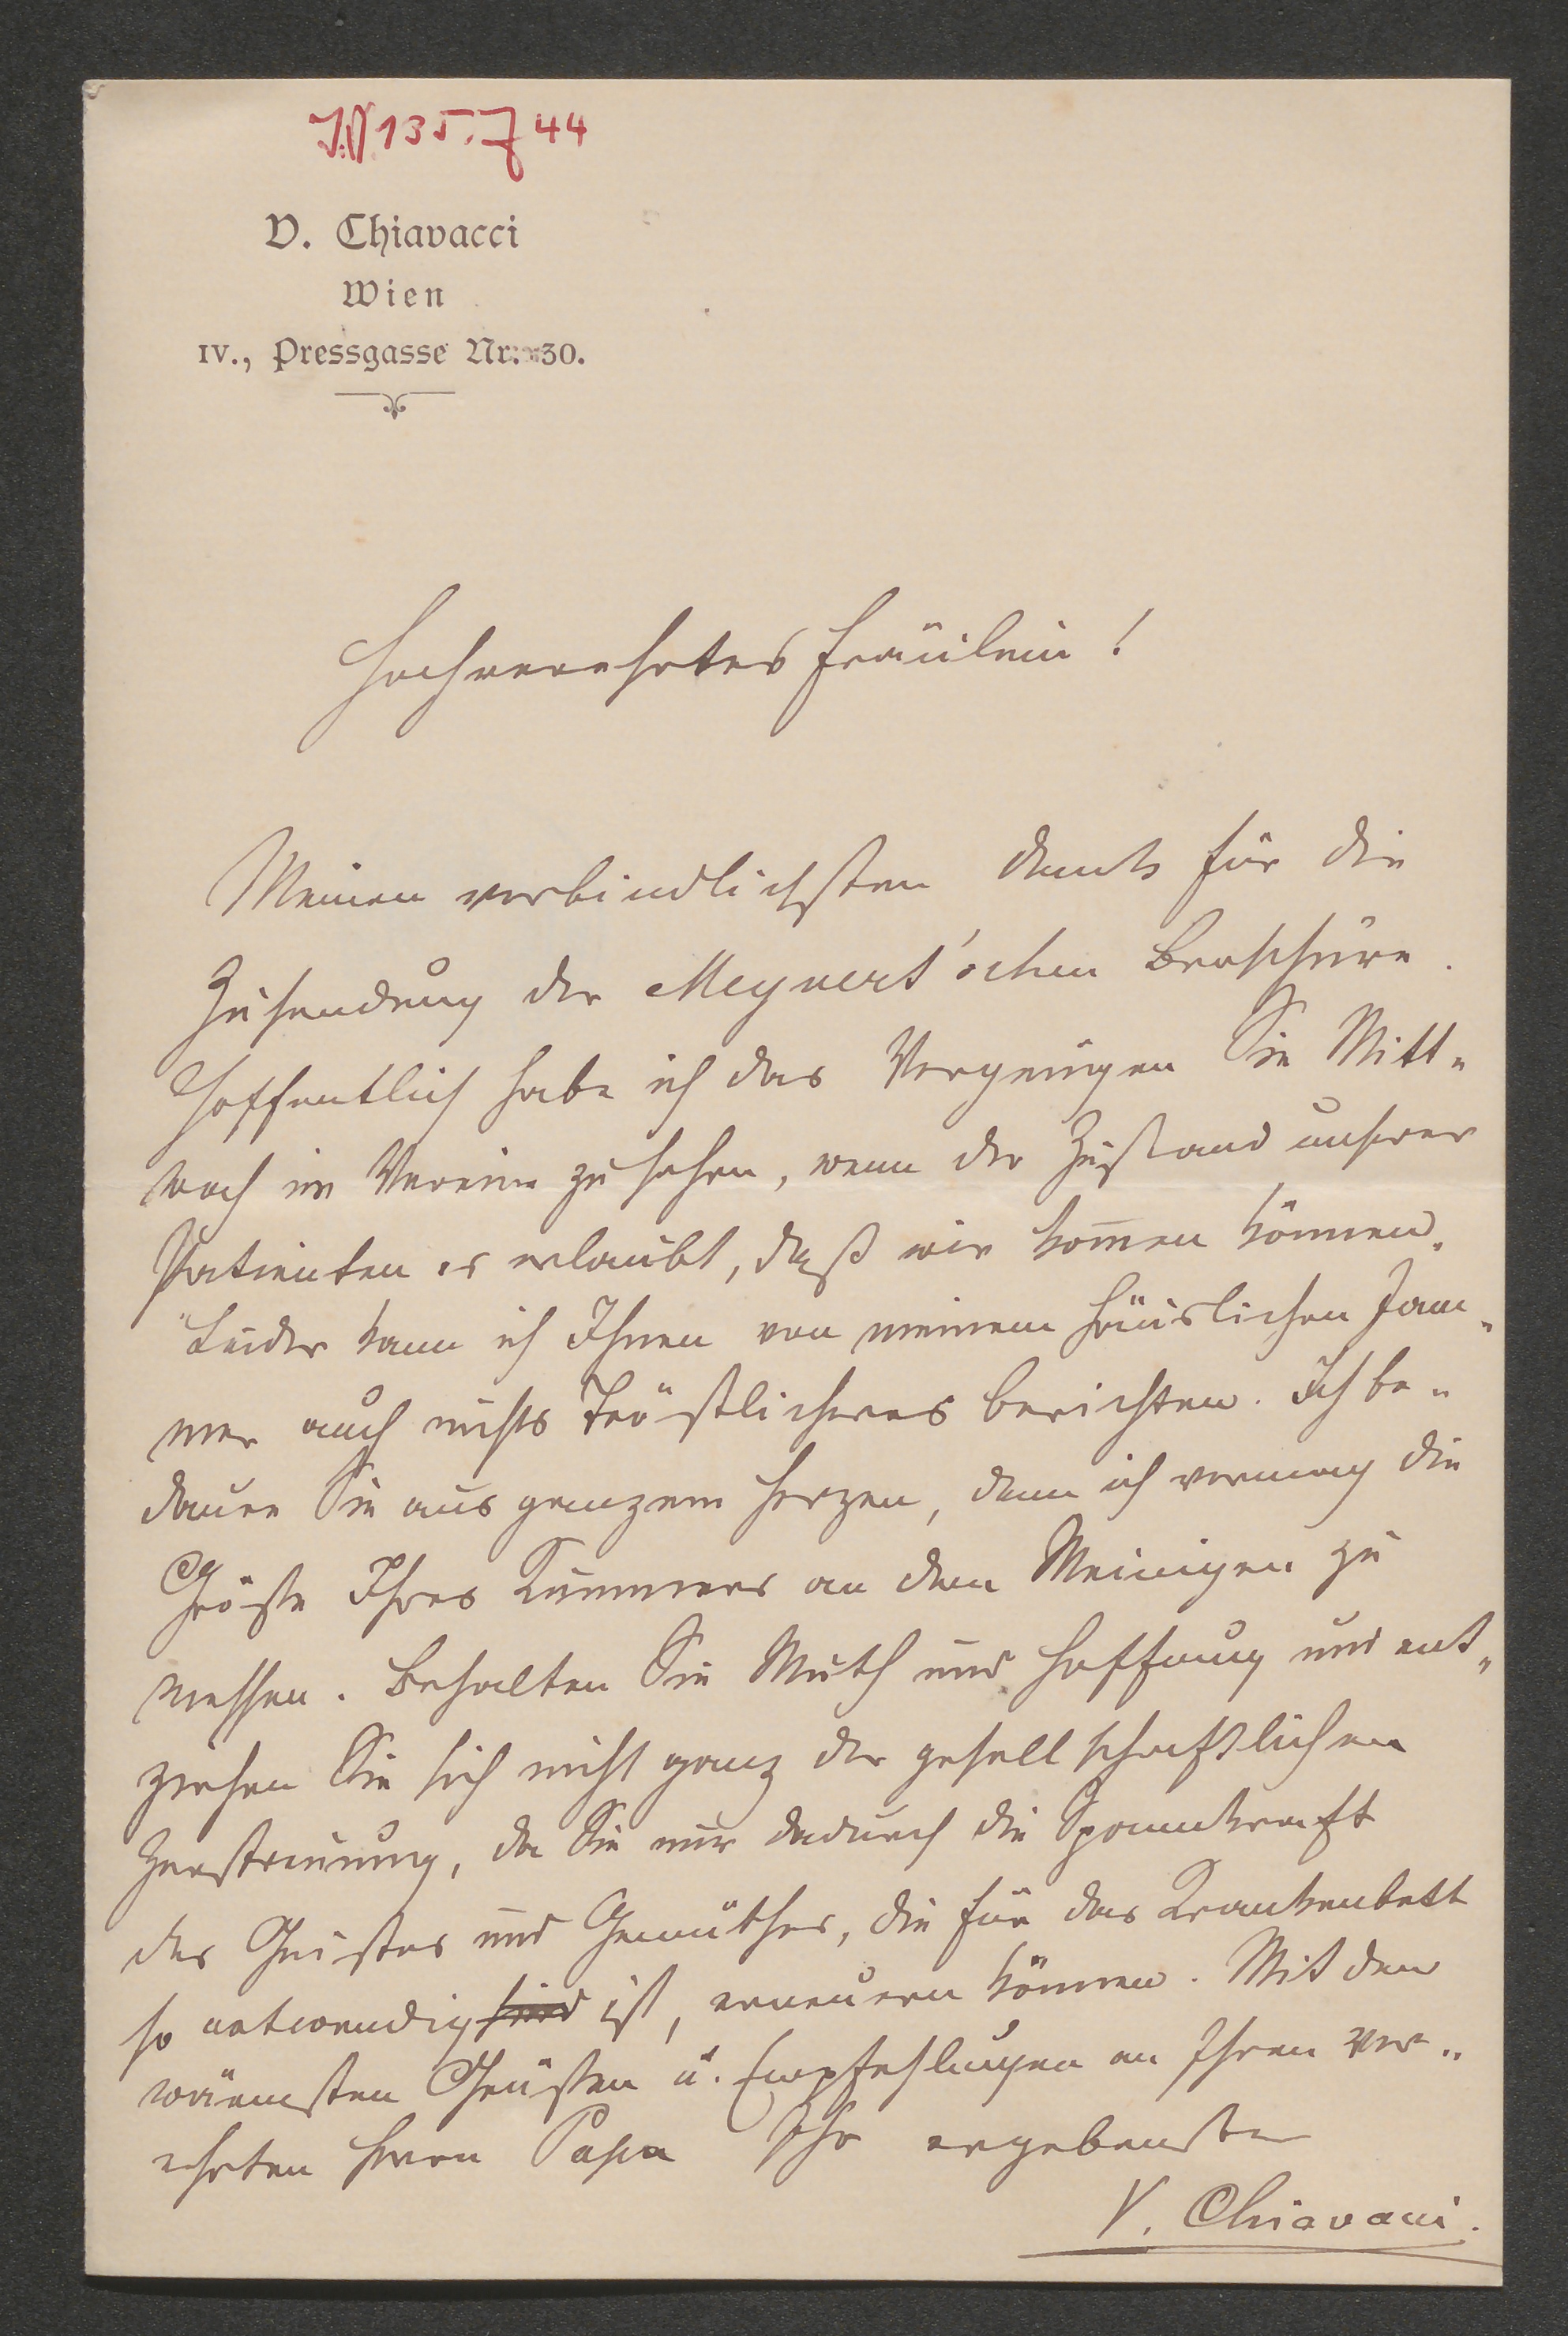 J.N 135.744
V. Chiavacci
Wien
IV., Pressgasse Nr. 30.
Hochverehrtes Fräulein!
Meinen verbindlichsten Dank für die
Zusendung der Meynert'schen Broschüre.
Hoffentlich habe ich das Vergnügen Sie Mitt-
woch im Vereine zu sehen, wenn der Zustand unserer
Patienten es erlaubt, daß wir kom̅en können.
Leider kann ich Ihnen von meinem häuslichen Jam-
mer auch nichts Tröstlicheres berichten. Ich be-
daure Sie aus ganzem Herzen, denn ich vermag die
Größe Ihres Kummers an dem Meinigen zu
messen. Behalten Sie Muth und Hoffnung und ent-
ziehen Sie sich nicht ganz der gesellschaftlichen
Zerstreuung, da Sie nur dadurch die Spannkraft
des Geistes und Gemüthes, die für das Krankenbett
so notwendig sind ist, erneuern können. Mit den
wärmsten Grüßen u. Empfehlungen an Ihren ver-
ehrten Herrn Papa Ihr ergebenster
V. Chiavacci.